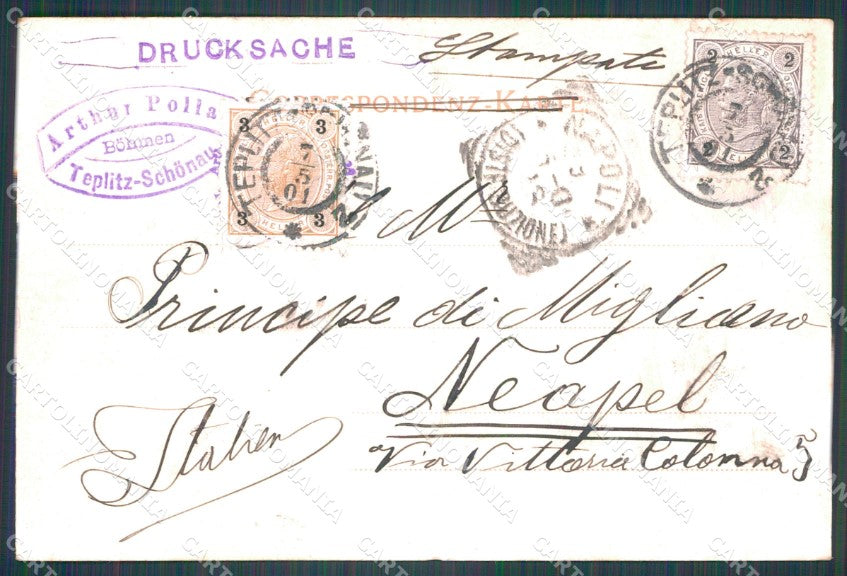 DRUCKSACHE
Stampati
CORRESPONDENZ-KARTE
Arthur Polla
Böhmen
Teplitz-Schönau
3 3
3 3
HELLER
TEPLITZ
5
01
NAPOLI
(DISTRIBUZIONE)
2 HELLER 2
2 2
TEPLITZ-SCH
5
Principe di Migliano
Neapel
Via Vittoria Colonna 5
Italien
CARTOLINOMANIA